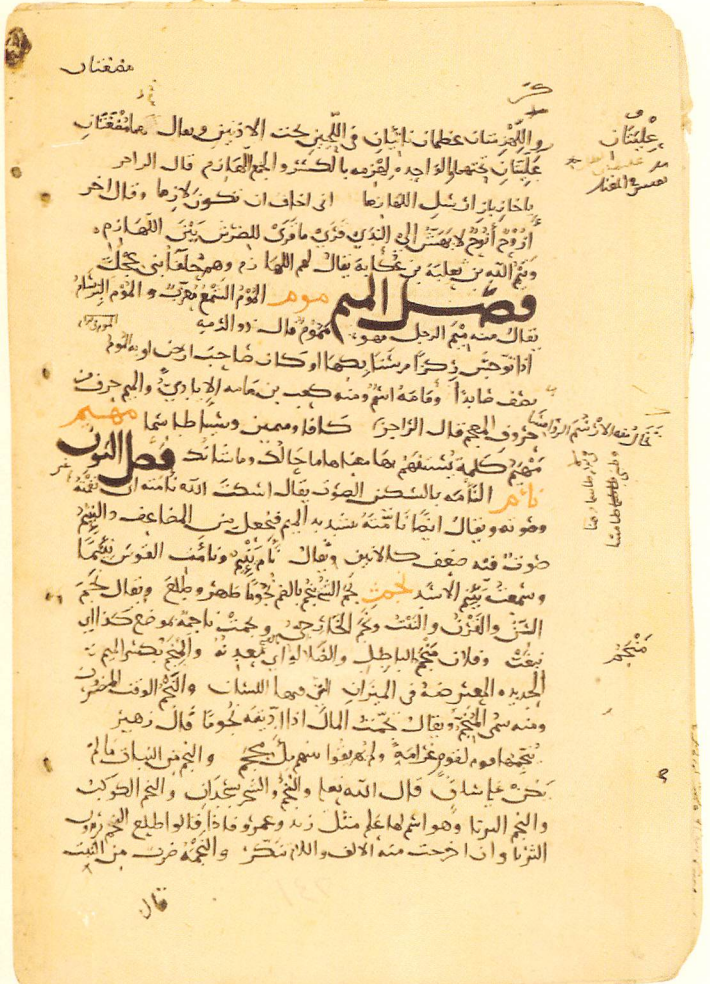 مضغتان
واللهزمتان عظمان ناتئان في اللحيين تحت الاذنين ويقال هما مضغتان
عليتان تحتهما الواحدة لهزمه بالكسر والجمع اللهازم قال الراجز
يا خاز باز ارسل اللهازما اني اخاف ان تكون لازما وقال اخر
أزوح أنوح لا يهش الى الندى قرى ما قرى للضرس بين اللهازم
وتيم الله بن ثعلبة بن عكابة يقال لهم اللهازم وهم حلفاء بني عجل
فصل الميم موم الموم الشمع معرب والموم البرسام
يقال منه ميم الرجل فهو مموم قال ذو الرمه
اذا توجس ركزا من سنابكها او كان صاحب ارض او به الموم
ومامة اسم ومنه كعب بن مامه الايادي والميم حرف من
حروف المعجم قال الراجز كافا وميمين وسينا طاسما مهيم
مهيم كلمة يستفهم بها معناها ما حالك وما شانك فصل النون
نأم النأمه بالتسكين الصوت يقال اسكت الله نأمته اي نغمته
وصوته ويقال ايضا نامته بتشديد الميم فيجعل من المضاعف والنئيم
صوت فيه ضعف كالانين يقال نأم ينئم ونأمت القوس نئيما
وسمعت نئيم الاسد نجم نجم الشي ينجم بالضم نجوما ظهر وطلع ويقال نجم
السن والقرن والنبت ونجم الخارجي ونجمت ناجمة بموضع كذا اي
نبغت وفلان منجم الباطل والضلالة اي معدنه والمنجم بكسر الميم
الحديده المعترضة في الميزان التي فيها اللسان والنجم الوقت المضروب
ومنه سمي المنجم ويقال نجمت المال اذا اديته نجوما قال زهير
ينجمها قوم لقوم غرامة ولم يهريقوا بينهم مل محجم والنجم من النبات ما لم
يكن على ساق قال الله تعا والنجم والشجر يسجدان والنجم الكوكب
والنجم الثريا وهو اسم لها علم مثل زيد وعمرو فاذا قالوا طلع النجم يريدون
الثريا وان اخرجت منه الالف واللام تنكر والنجمة ضرب من النبت
قال
عليتان
منجم